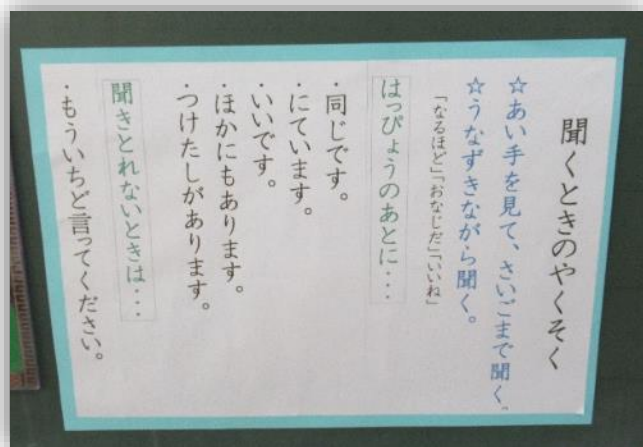 聞くときのやくそく
☆あい手を見て、さいごまで聞く。
☆うなずきながら聞く。
「なるほど」「おなじだ」「いいね」
はっぴょうのあとに・・・
・同じです。
・にています。
・いいです。
・ほかにもあります。
・つけたしがあります。
聞きとれないときは・・・
・もういちど言ってください。